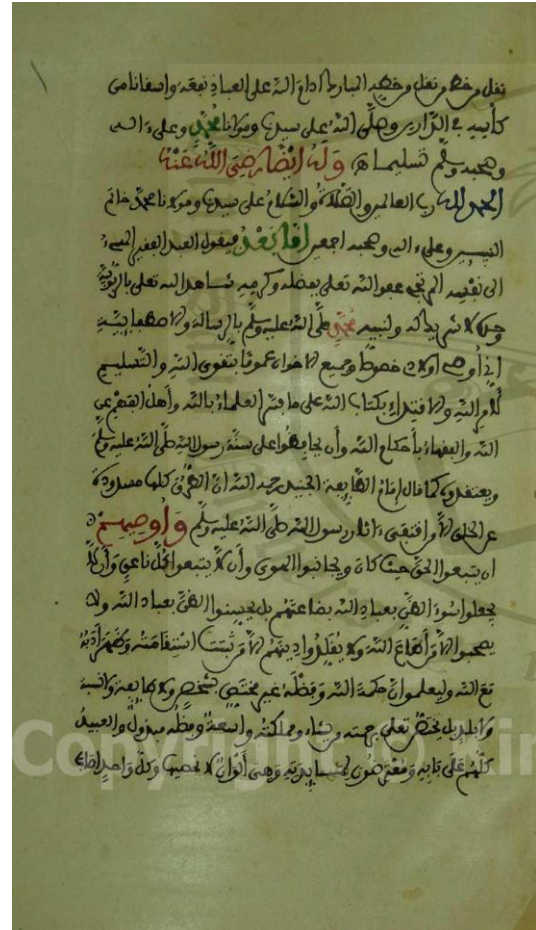 نقل من خطه ونقل من خطه المبارك ادام الله على العباد نفعه واسقانا من
كأسه في الدارين وصلى الله على سيدنا ومولانا محمد وعلى ءاله
وصحبه وسلم تسليما وله ايضا رضي الله عنه
الحمد لله رب العالمين والصلاة والسلام على سيدنا ومولانا محمد خاتم
النبيين وعلى ءاله وصحبه اجمعين اما بعد فيقول العبد الفقير المسيء
الى نفسه المرتجي عفو الله تعلى بفضله وكرمه شاهدا لله تعلى بالربوبية
وحده لا شريك له ولنبيه محمد صلى الله عليه وسلم بالرسالة والاصطفائية
اني أوصي اولادي خصوصا وجميع الاخوان عموما بتقوى الله والتسليم
لأمر الله والاقتداء بكتاب الله على ما فسر العلماء بالله وأهل الفهم عن
الله والفقهاء بأحكام الله وأن يحافظوا على سنة رسول الله صلى الله عليه وسلم
ويعتقدوه كما قال إمام الطايفة الجنيد رحمه الله ان الطرق كلها مسدودة
عن الخلق الا من اقتفى ءاثار رسول الله صلى الله عليه وسلم وأوصيهم
ان يتبعوا الحق حيث كان ويجانبوا الهوى وأن لا يتبعوا كل ناعق وأن لا
يجعلوا سوء الظن بعباد الله بضاعتهم بل يحسنوا الظن بعباد الله ولا
يصحبوا الا من أطاع الله ولا يقلدوا دينهم الا من ثبتت استقامته وظهر أدبه
مع الله وليعلموا أن حكمة الله وفضله غير مختص بشخص ولا طايفة ولا نسبة
ولا بلد بل يختص تعلى برحمته من يشاء ومملكته واسعة وفضله مبذول والعبيد
كلهم على بابه ومعترضون وهي أنوار لا تحصى وكل واحد
Copyright © Kin